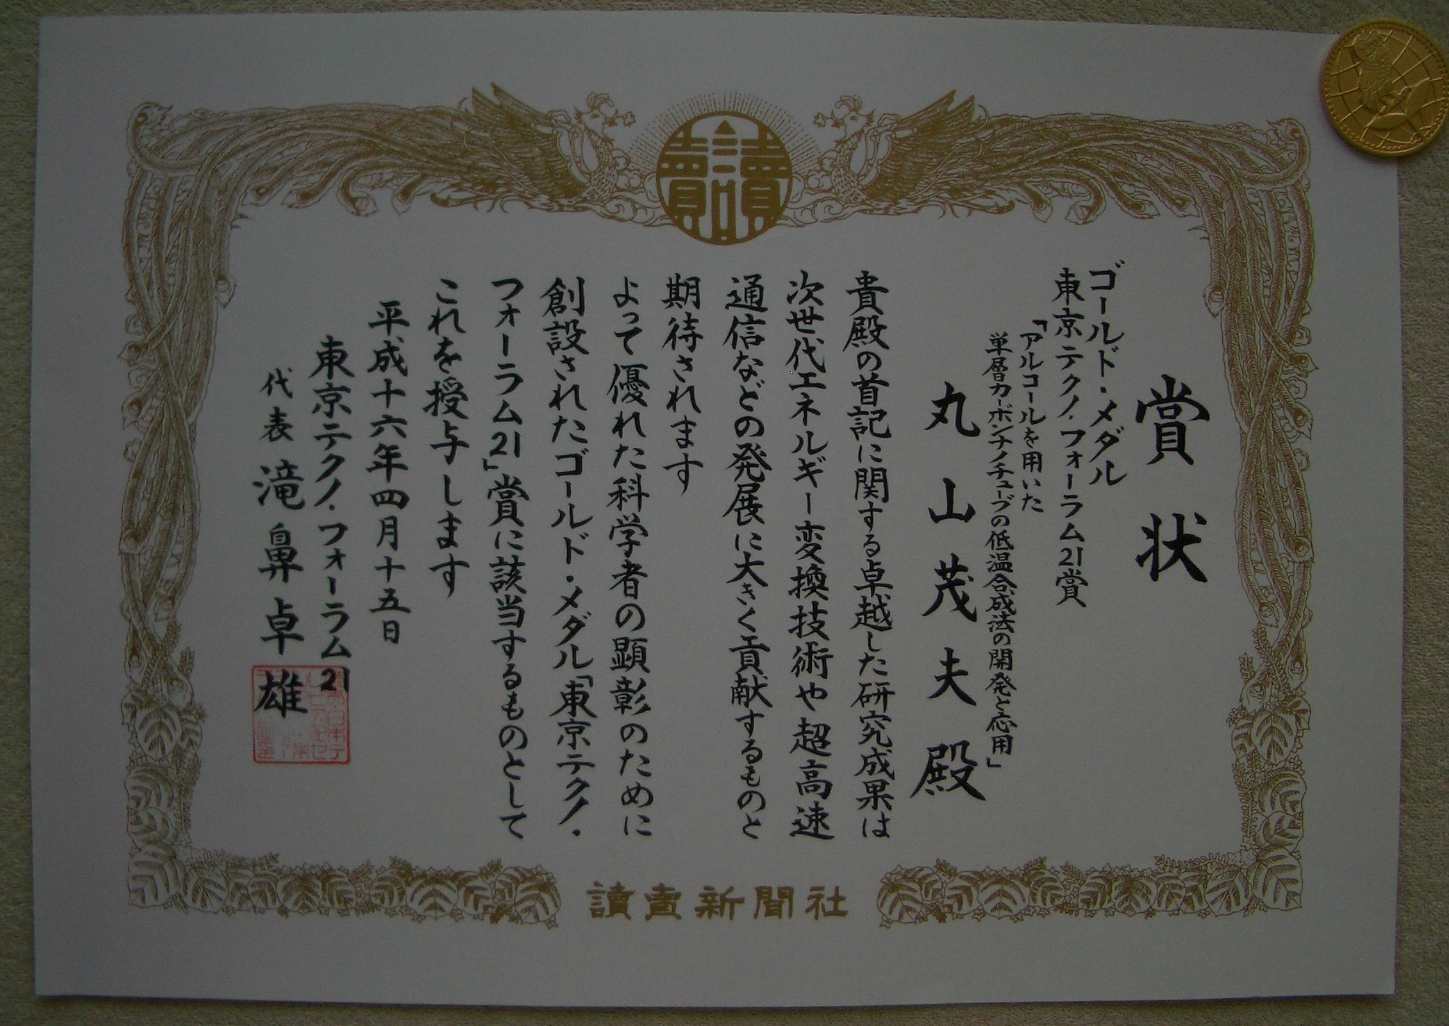 讀賣
賞状
ゴールド・メダル
東京テクノ・フォーラム21賞
「アルコールを用いた
単層カーボンナノチューブの低温合成法の開発と応用」
丸山茂夫殿
貴殿の首記に関する卓越した研究成果は
次世代エネルギー変換技術や超高速
通信などの発展に大きく貢献するものと
期待されます
よって優れた科学者の顕彰のために
創設されたゴールド・メダル「東京テクノ・
フォーラム21」賞に該当するものとして
これを授与します
平成十六年四月十五日
東京テクノ・フォーラム21
代表 滝鼻卓雄
讀賣新聞社